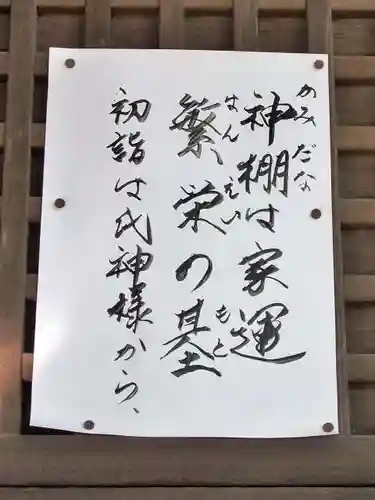 神棚は家運
かみだな
繁栄の基
はんえい もと
初詣は氏神様から、